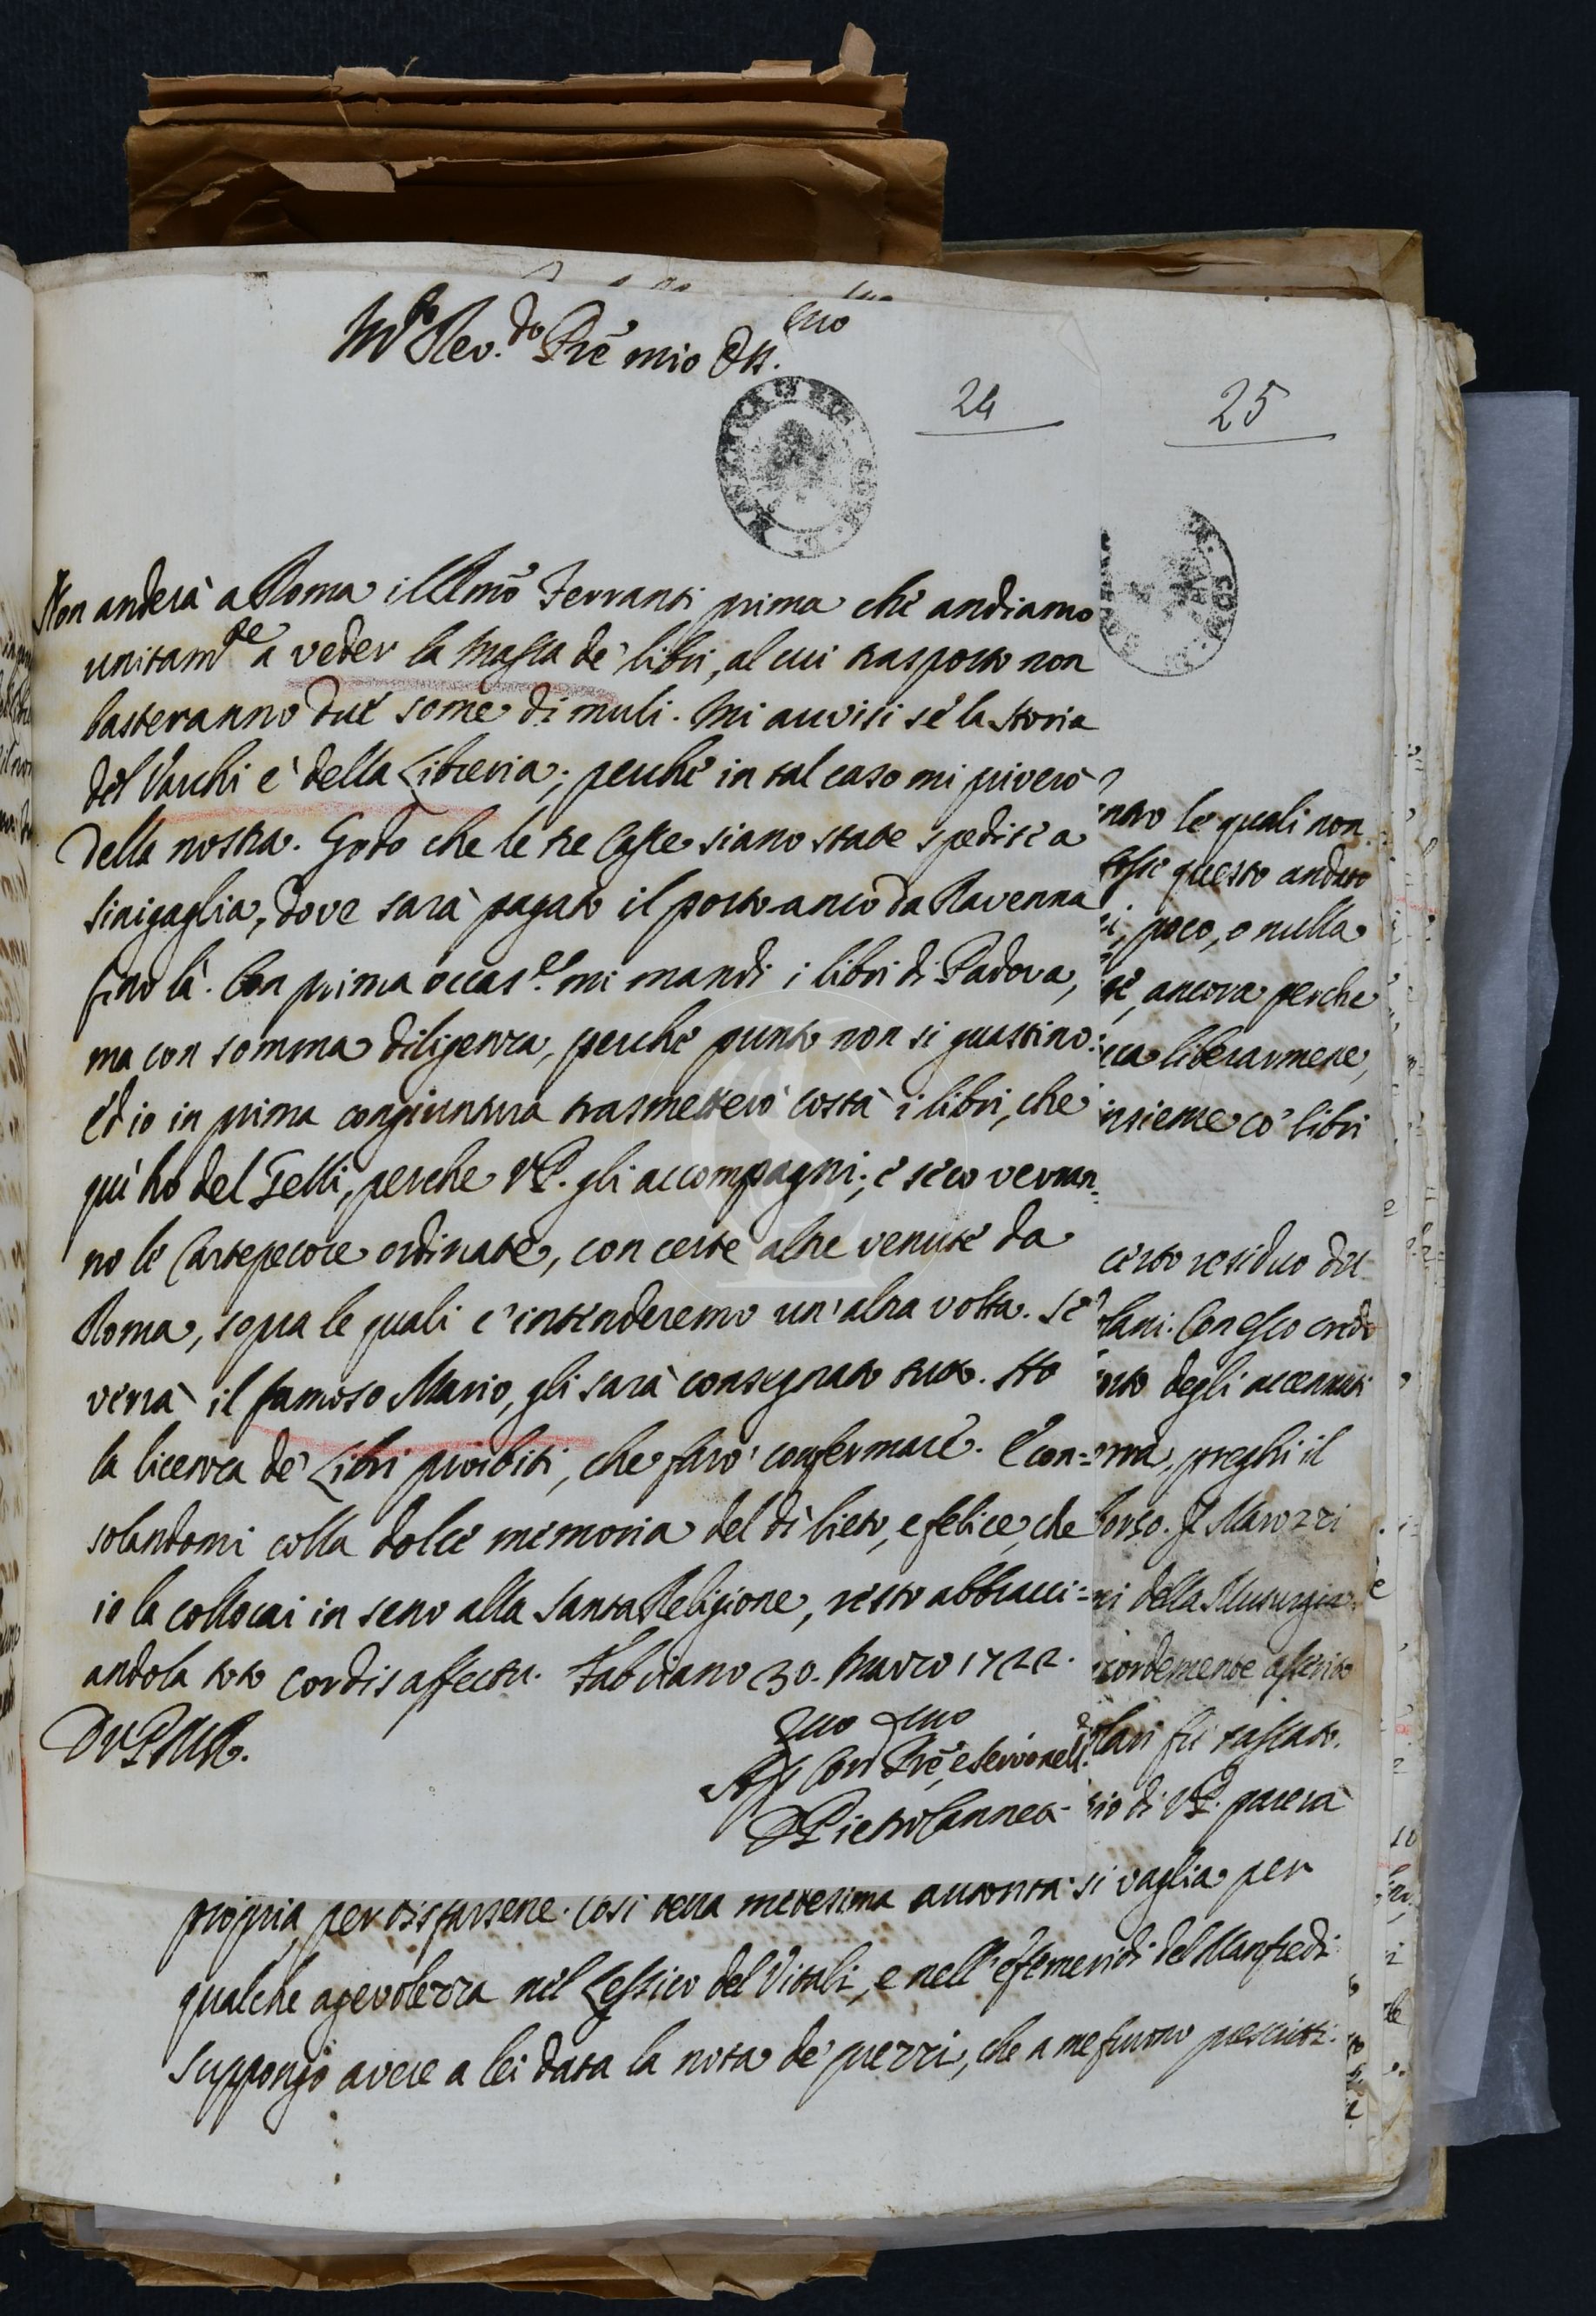 M.to Rev.do Prē mio Oss.mo
24
25
Non anderà a Roma il Rmō Ferranti prima che andiamo
unitam.te a veder la massa de' libri, al cui trasporto non
basteranno due some di muli. Mi avvisi se la Storia
del Varchi e' della Libreria; perche in tal caso mi priverò
della nostra. Godo che le tre Casse siano state spedite a
Sinigaglia, dove sarà pagato il porto anco da Ravenna
fino là. Con prima occas.e mi mandi i libri di Padova,
ma con somma diligenza, perche punto non si guastino:
ed io in prima congiuntura trasmetterò costà i libri, che
quì ho del Gelli, perche V.P. gli accompagni; e seco verran=
no le Cartepecore ordinate, con certe altre venute da
Roma, sopra le quali c'intenderemo un'altra volta. Se
verrà il famoso Mario, gli sarà consegnato tutto. Ho
la licenza de' Libri proibiti, che farò confermare. E con=
solandomi colla dolce memoria del dì lieto, e felice, che
io la collocai in seno alla Santa Religione, resto abbracci=
andola toto cordis affectu. Fabriano 30. Marzo 1722.
D V P M R.
Aff.mo Con Prē, e Servo nel
D Pietro Canneti
le quali non
questo andato
poco, o nulla
ancora perche
liberarmene,
insieme co' libri
certo residuo del
Con esso credo
degli accennati
preghi il
Il Marozzi
della Musurgia
asserito
fu tassato.
di V.P. parerà
propria, per disfarsene. Così della medesima autorità si vaglia per
qualche agevolezza nel Lessico del Vitali, e nell'efemeridi del Manfredi
Suppongo avere a lei data la nota de' prezzi, che a me furono prescritti.